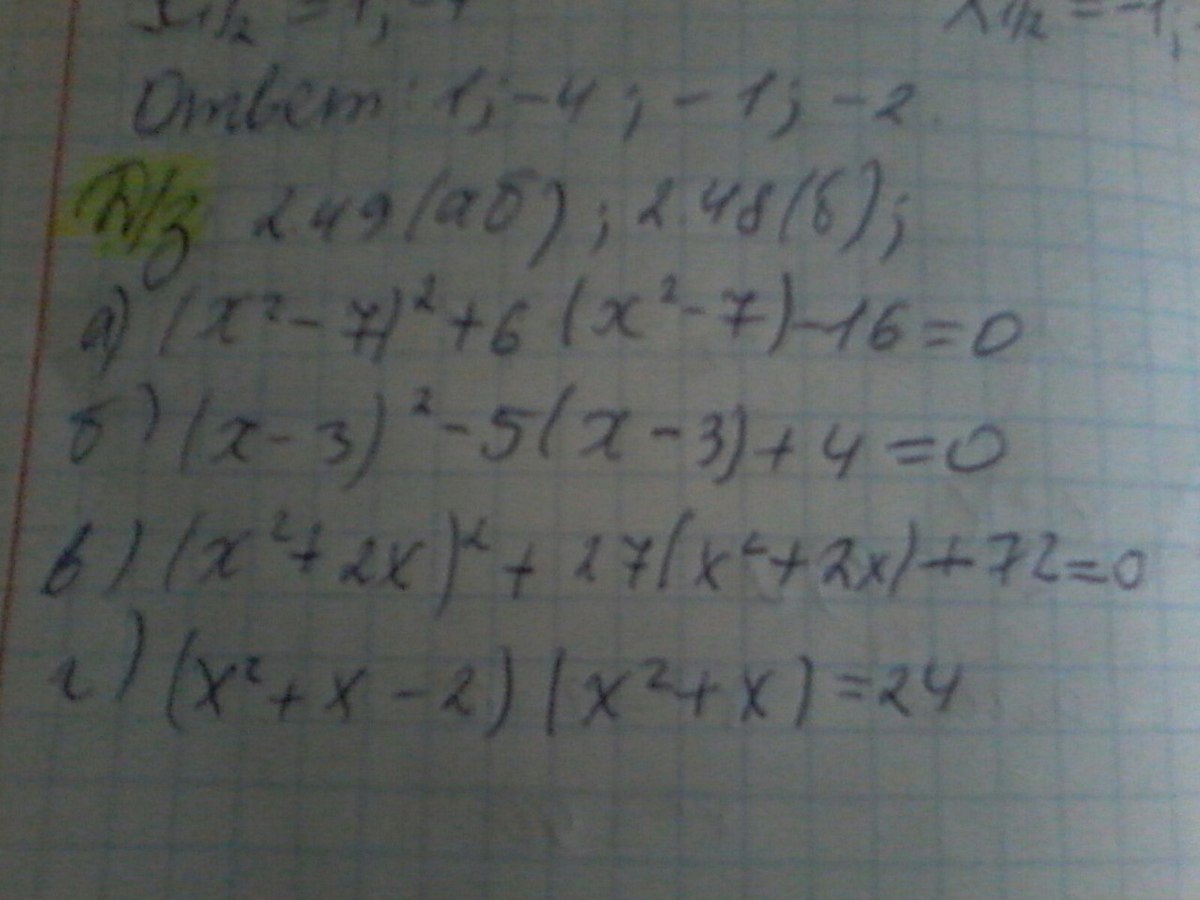 x₁/₂ = 1; -4 x₁/₂ = -1;
Ответ: 1; -4; -1; -2.
Д/з 249(аб); 248(б);
а) (x² - 7)² + 6 (x² - 7) - 16 = 0
б) (x - 3)² - 5(x - 3) + 4 = 0
в) (x² + 2x)² + 27(x² + 2x) + 72 = 0
г) (x² + x - 2) (x² + x) = 24